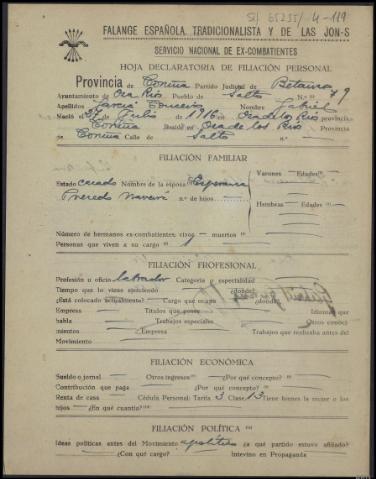 FALANGE ESPAÑOLA TRADICIONALISTA Y DE LAS JON-S
SERVICIO NACIONAL DE EX-COMBATIENTES
HOJA DECLARATORIA DE FILIACIÓN PERSONAL
Provincia de Coruña Partido Judicial de Betanzos
Ayuntamiento de Oza Rio Pueblo de Salto N.º 79
Apellidos García Nombre Gabriel
Nació el Julio de 1916 en Oza de los Rios provincia
Coruña Reside en Oza de los Rios Provincia
de Coruña Calle de Salto
FILIACIÓN FAMILIAR
Varones Edades
Estado casado Nombre de la esposa Esperanza
n.º de hijos
Hembras Edades
Número de hermanos ex-combatientes, vivos muertos
Personas que viven a su cargo
FILIACIÓN PROFESIONAL
Profesión u oficio labrador Categoría o especialidad
Tiempo que lo viene ejerciendo
¿Está colocado actualmente? Cargo que ocupa
Empresa Títulos que posee Idiomas que
habla Trabajos especiales Otros conoci-
mientos Empresa Trabajos que realizaba antes del
Movimiento
FILIACIÓN ECONÓMICA
Sueldo o jornal Otros ingresos ¿Por qué concepto?
Contribución que paga ¿Por qué concepto?
Renta de casa Cédula Personal: Tarifa 3 Clase 13 Tiene bienes la mujer o los
hijos ¿En qué cuantía?
FILIACIÓN POLÍTICA
Ideas políticas antes del Movimiento apolítico ¿a qué partido estuvo afiliado?
¿Con qué cargo? Intervino en Propaganda